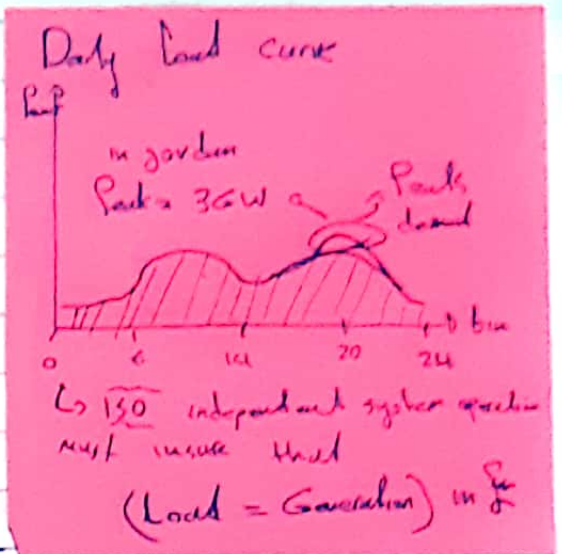 Daily Load curve
in jordan
Peak = 3GW
Peak
demand
time
0 6 14 20 24
↳ ISO independent system operation
must insure that
(Load = Generation) in